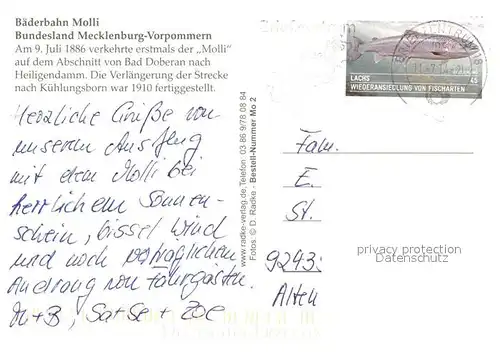 Bäderbahn Molli
Bundesland Mecklenburg-Vorpommern
Am 9. Juli 1886 verkehrte erstmals der „Molli"
auf dem Abschnitt von Bad Doberan nach
Heiligendamm. Die Verlängerung der Strecke
nach Kühlungsborn war 1910 fertiggestellt.
Herzliche Grüße von
unserem Ausflug
mit dem Molli bei
herrlichem Sonnen-
schein, bissel Wind
und noch erträglichem
Andrang von Fahrgästen.
M+B, Sa+Se + Zoe
www.radke-verlag.de, Telefon: 03 86 9/78 08 84
Fotos: © D. Radke - Bestell-Nummer Mo 2
LACHS 45
WIEDERANSIEDLUNG VON FISCHARTEN
BRIEFZENTRUM 18
Fam.
E.
St.
9243
Alten
privacy protection
Datenschutz